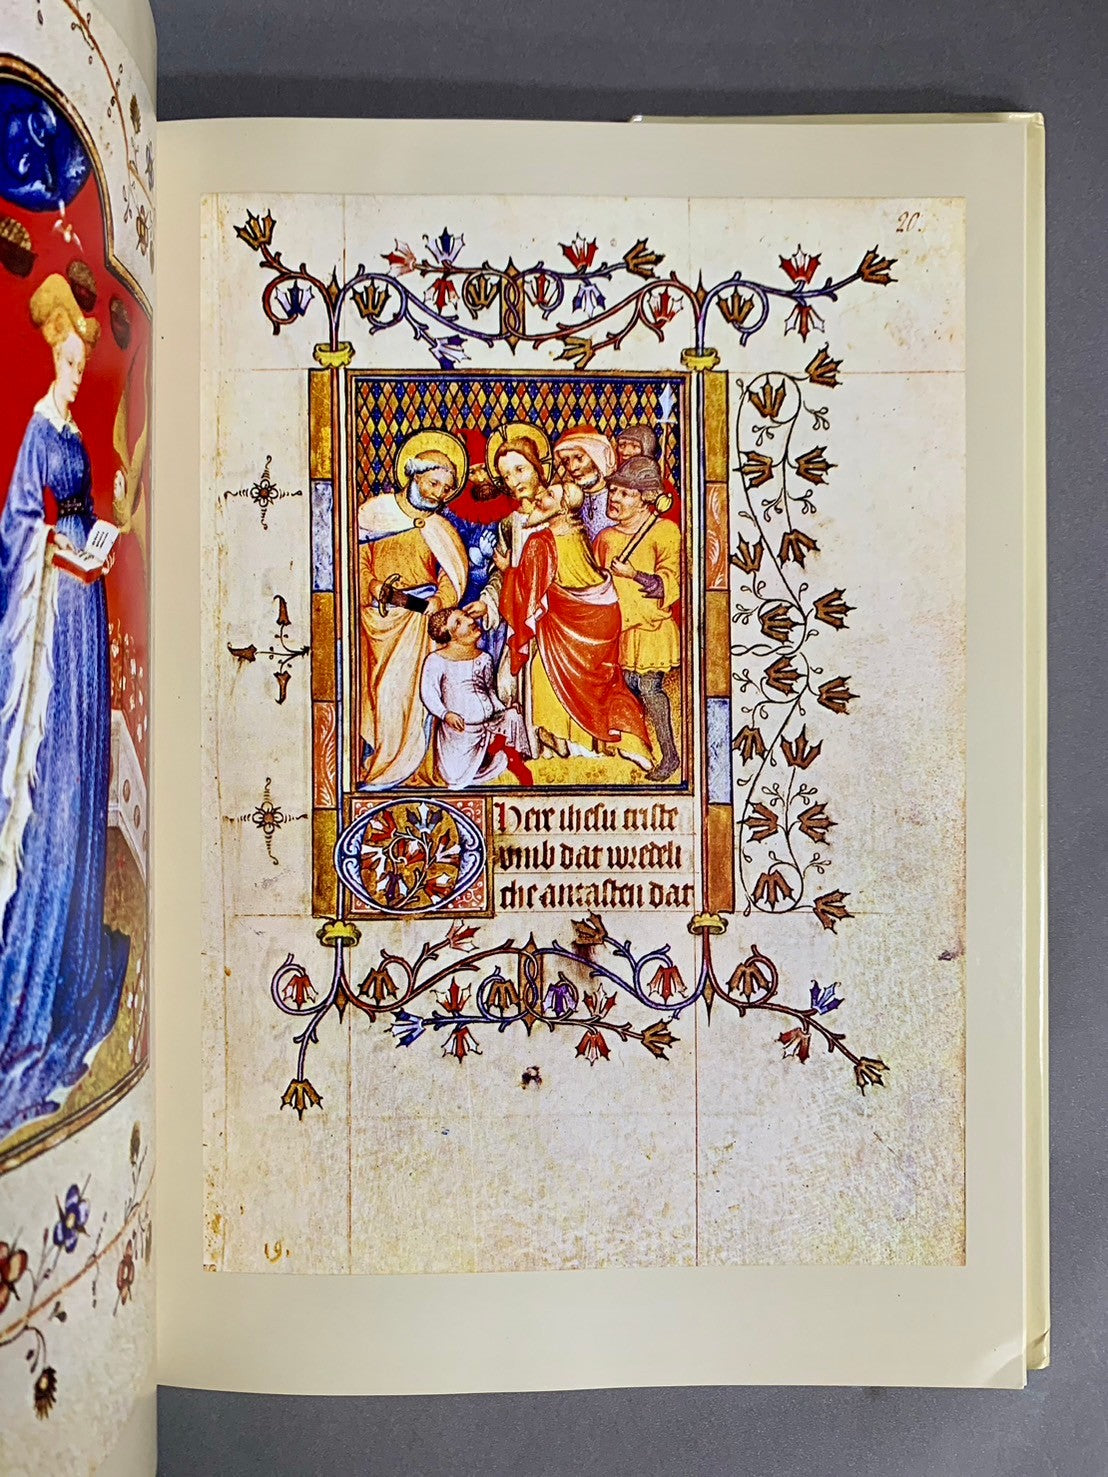 20.
O Here ihesu criste
vmb dat wredeli
che antasten dat
19.